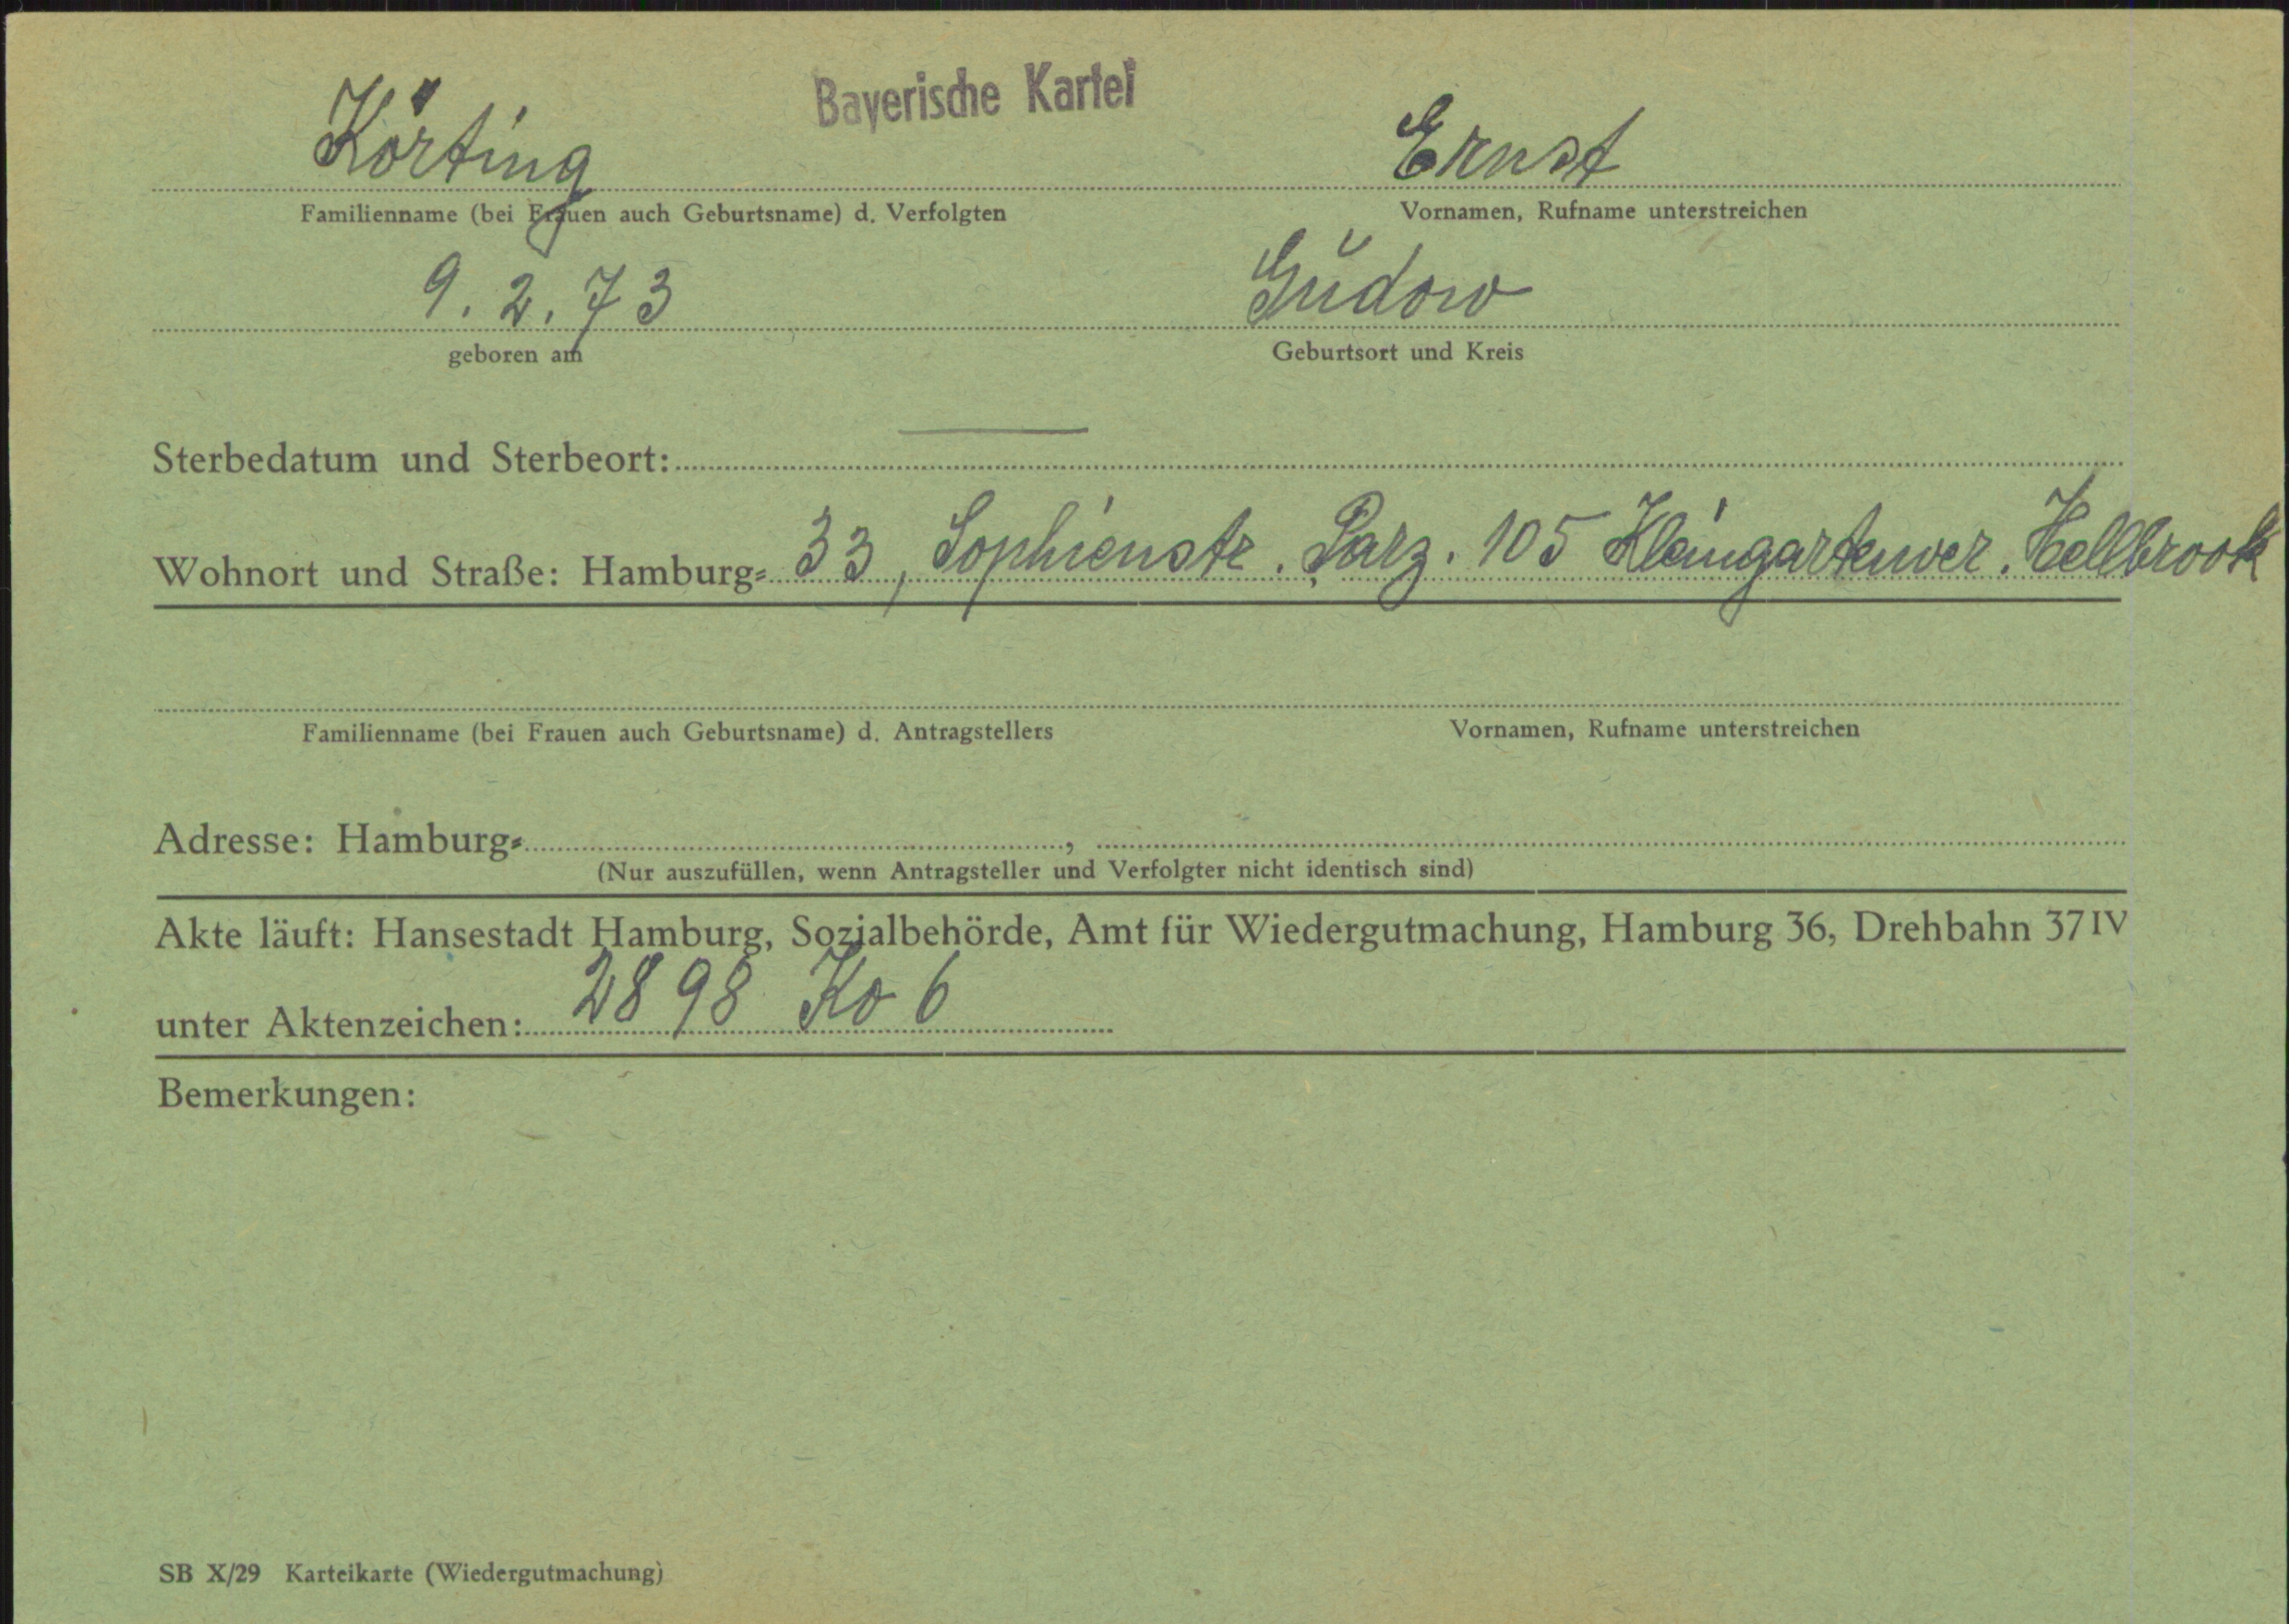 Bayerische Kartei
Körting Ernst
Familienname (bei Frauen auch Geburtsname) d. Verfolgten Vornamen, Rufname unterstreichen
9. 2. 73 Güdow
geboren am Geburtsort und Kreis
Sterbedatum und Sterbeort: —
Wohnort und Straße: Hamburg= 33, Sophienstr. Parz. 105 Kleingartenver. Hellbrook
Familienname (bei Frauen auch Geburtsname) d. Antragstellers Vornamen, Rufname unterstreichen
Adresse: Hamburg= ,
(Nur auszufüllen, wenn Antragsteller und Verfolgter nicht identisch sind)
Akte läuft: Hansestadt Hamburg, Sozialbehörde, Amt für Wiedergutmachung, Hamburg 36, Drehbahn 37 IV
unter Aktenzeichen: 2898 Ko 6
Bemerkungen:
SB X/29 Karteikarte (Wiedergutmachung)